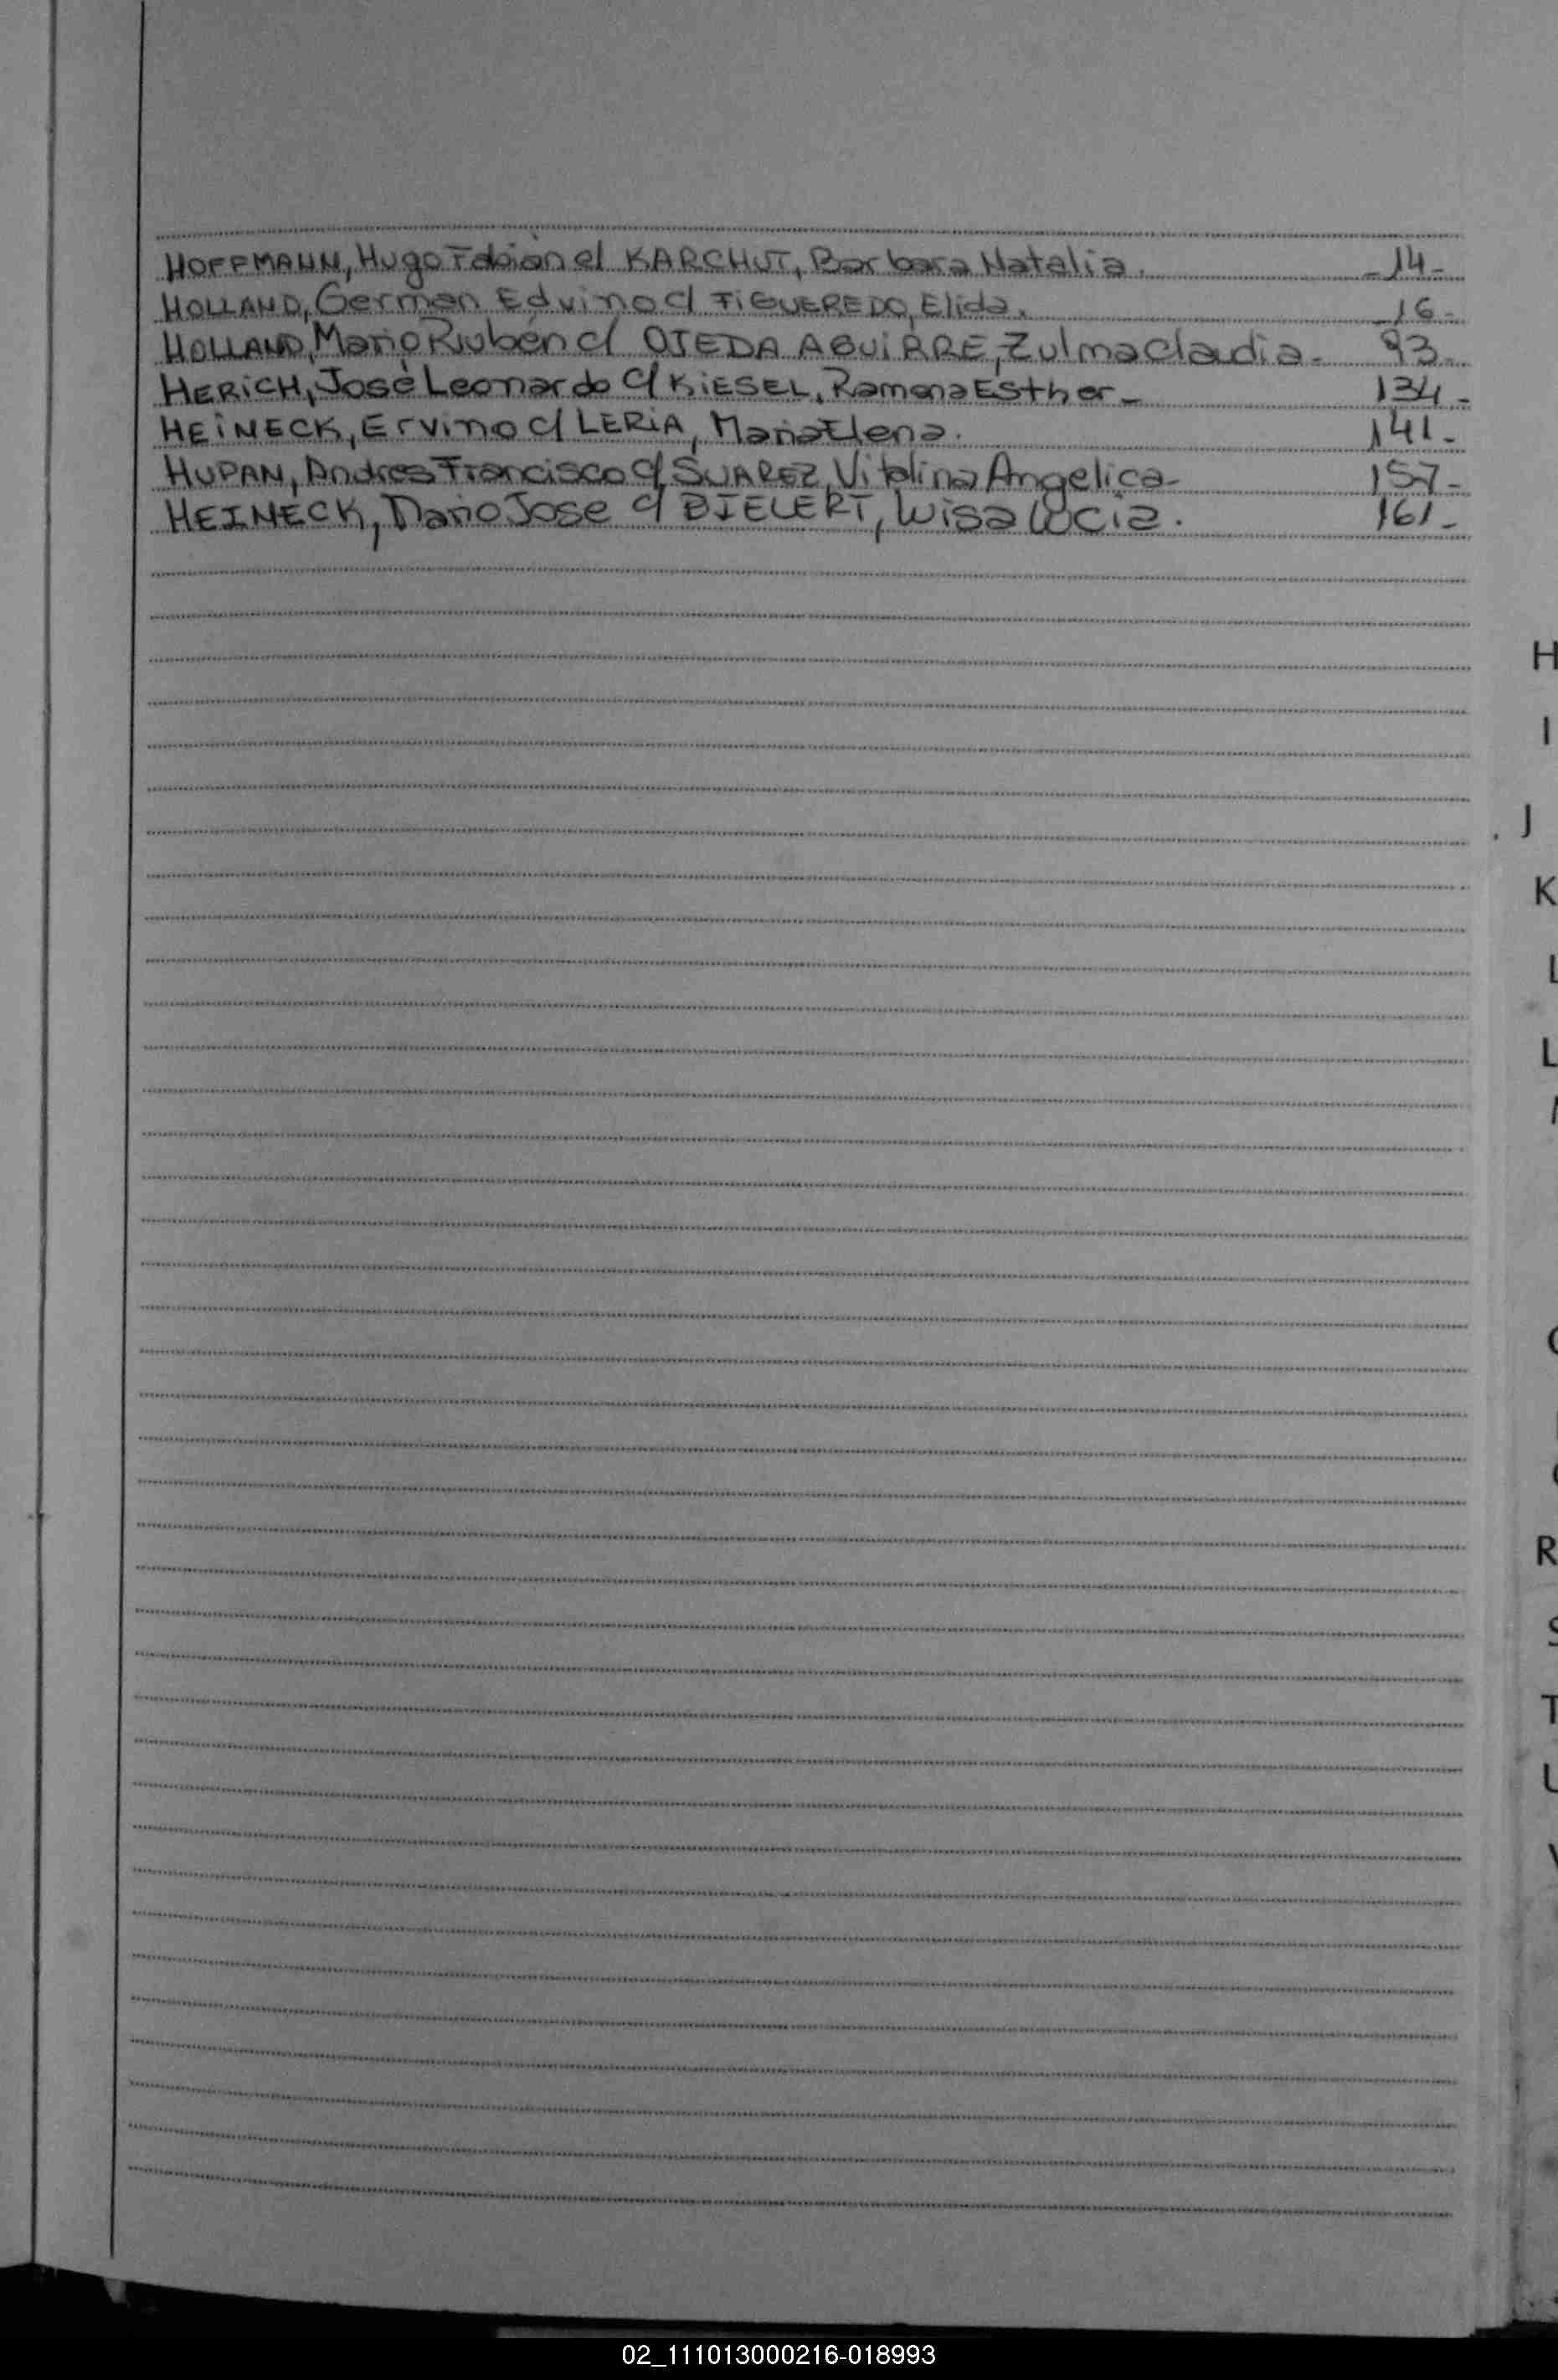 HOFFMANN, Hugo Fabián c/ KARCHUT, Barbara Natalia. -14-
HOLLAND, German Edvino c/ FIGUEREDO, Elida. -16-
HOLLAND, Mario Rubén c/ OJEDA AGUIRRE, Zulma Claudia- 93-
HERICH, José Leonardo c/ KIESEL, Ramona Esther- 134-
HEINECK, Ervino c/ LERIA, Maria Elena. 141-
HUPAN, Andres Francisco c/ SUAREZ, Vitalina Angelica- 157-
HEINECK, Dario Jose c/ BIELERT, Luisa Lucia. 161-
H
I
J
K
L
L
R
S
T
U
V
02_111013000216-018993